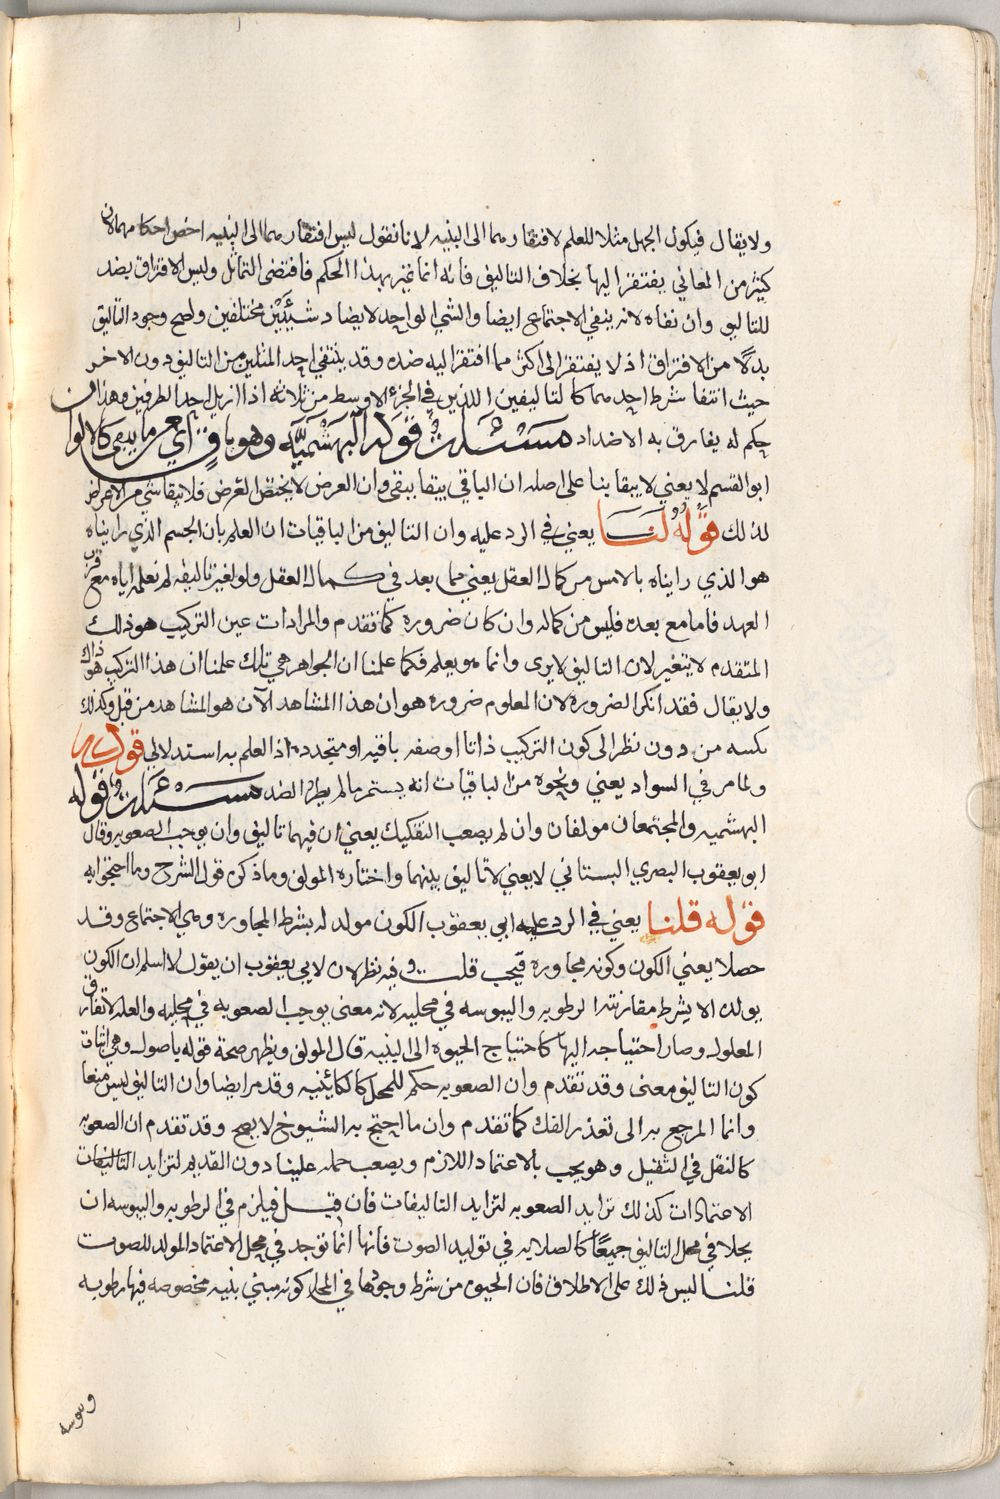 ولا يقال فيكون الجهل مثلا للعلم لافتقارهما الى البنيه لانا نقول ليس افتقارهما الى البنيه اخص احكامهما لان
كثير من المعاني يفتقر اليها بخلاف التاليف فانه انما تميز بهذا الحكم فاقتضى التماثل وليس الافتراق بضد
للتاليف وان نفاه لانه ينفي الاجتماع ايضا والشي الواحد لا يضاد شيئين مختلفين ولصح وجود التاليف
بدلا من الافتراق اذ لا يفتقر الى اكثر مما افتقر اليه ضده وقد ينتفي احد المثلين من التاليف دون الاخر
حيث انتفا شرط احدهما كالتاليفين اللذين في الجزء الاوسط من ثلاثه اذا ازيل احد الطرفين وهذان
حكم له يفارق به الاضداد مسئلة قوله البهشميه وهو باق اي مما يبقى كالالوان
ابو القسم لا يعني لا يبقا بنا على اصله ان الباقي يبقا ببقى وان العرض لا يختص العرض فلا يبقا شي من الاعراض
لذلك قوله لنا يعني في الرد عليه وان التاليف من الباقيات ان العلم بان الجسم الذي رايناه
هو الذي رايناه بالامس من كمال العقل يعني مما بعد في كمال العقل ولو لغير تاليفه لم نعلم اياه مع قرب
العهد فاما مع بعده فليس من كماله وان كان ضروره كما تقدم والمرادات عين التركيب هو ذلك
المتقدم لا يتغير لان التاليف لا يرى وانما هو يعلم فكما علمنا ان الجواهر هي تلك علمنا ان هذا التركيب هو ذاك
ولا يقال فقد انكر الضروره لان المعلوم ضروره هو ان هذا المشاهد الآن هو المشاهد من قبل وكذلك
من دون نظر الى كون التركيب ذاتا او صفه باقيه او متجدده اذ العلم به استدلالي قوله
ولما مر في السواد يعني ونحوه من الباقيات انه يستمر ما لم يطرا الضد مسئلة قوله
البهشميه والمجتمعان مولفان وان لم يصعب التفكيك يعني ان فيهما تاليف وان يوجب الصعوبه وقال
ابو يعقوب البصري البستاني لا يعني لا تاليف بينهما واختاره المولف وما ذكره قول الشرح وما احتجوا به
قوله قلنا يعني في الرد عليه ابي يعقوب الكون مولد له بشرط المجاوره وهي الاجتماع وقد
حصلا يعني الكون وكونه مجاوره فيجب قلت وفيه نظر لان لابي يعقوب ان يقول لا اسلم ان الكون
يولده الا بشرط مقارنته الرطوبه واليبوسه في محليه لانه معنى يوجب الصعوبه في محليه والعله لا تفارق
المعلول وصار احتياجه اليها كاحتياج الحيوه الى البنيه قال المولف ويظهر صحة قوله باصول وهي اثبات
كون التاليف معنى وقد تقدم وان الصعوبه حكم للمحل كالكاينيه وقد مر ايضا وان التاليف ليس منعا
وانما المرجع به الى تعذر الفك كما تقدم وان ما احتج به الشيوخ لا يصح وقد تقدم ان الصعوبه
كالثقل في الثقيل وهو يجب بالاعتماد اللازم ويصعب حمله علينا دون القديم لتزايد التاليفات
الاعتمادات كذلك تزايد الصعوبه لتزايد التاليفات فان قيل فيلزم في الرطوبه واليبوسه ان
يحلا في محل التاليف جميعا كالصلابه في توليد الصوت فانها انما توجد في محل الاعتماد المولد للصوت
قلنا ليس ذلك على الاطلاق فان الحيوه من شرط وجودها في المحل كونه مبني بنيه مخصوصه فيها رطوبه
ويبوسه